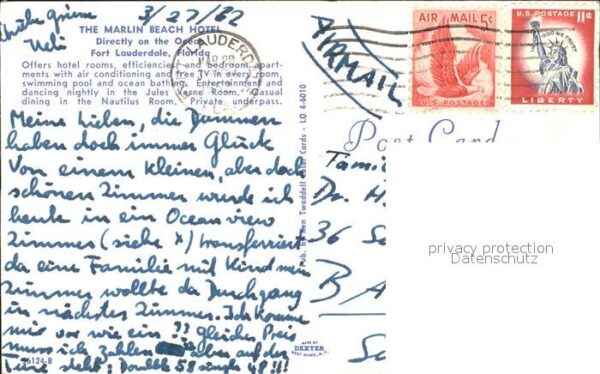 3/27/62
THE MARLIN BEACH HOTEL
Directly on the Ocean
Fort Lauderdale, Florida
Offers hotel rooms, efficiencies and bedroom apart-
ments with air conditioning and free TV in every room,
swimming pool and ocean bathing. Entertainment and
dancing nightly in the Jules Verne Room. Casual
dining in the Nautilus Room. Private underpass.
Meine Lieben, die Dummen
haben doch immer Glück
Von einem kleinen, aber doch
schönen Zimmer wurde ich
heute in ein Ocean view
Zimmer (siehe X) transferriert
da eine Familie mit Kind mein
Zimmer wollte da Durchgang
in nächstes Zimmer. Ich komme
mir vor wie ein ?? Gleichen Preis
muss ich zahlen aber auf der
Türe steht: Double 58 single 48 !!!
5124-B
Pub. by Ken Twaddell Color Cards - LO 4-6010
MADE BY
DEXTER
WEST NYACK, N.Y.
AIRMAIL
AIR MAIL 5¢
U.S. POSTAGE
U.S. POSTAGE 11¢
IN GOD WE TRUST
LIBERTY
Post Card
Dr. H
36
B A
privacy protection
Datenschutz